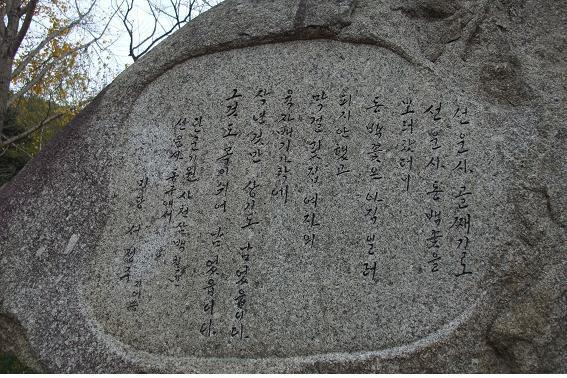 선운사 골째기로
선운사 동백꽃을
보러 갔더니
동백꽃은 아직 일러
피지 안했고
막걸릿집 여자의
육자배기 가락에
작년것만 상기도 남었읍니다.
그것도 목이 쉬어 남었읍니다.
단군기원 사천삼백
선운사 동구에서
미당 서정주